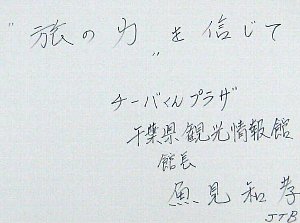 "旅の力"を信じて
チーバくんプラザ
千葉県観光情報館
館長
魚見和孝
JTB